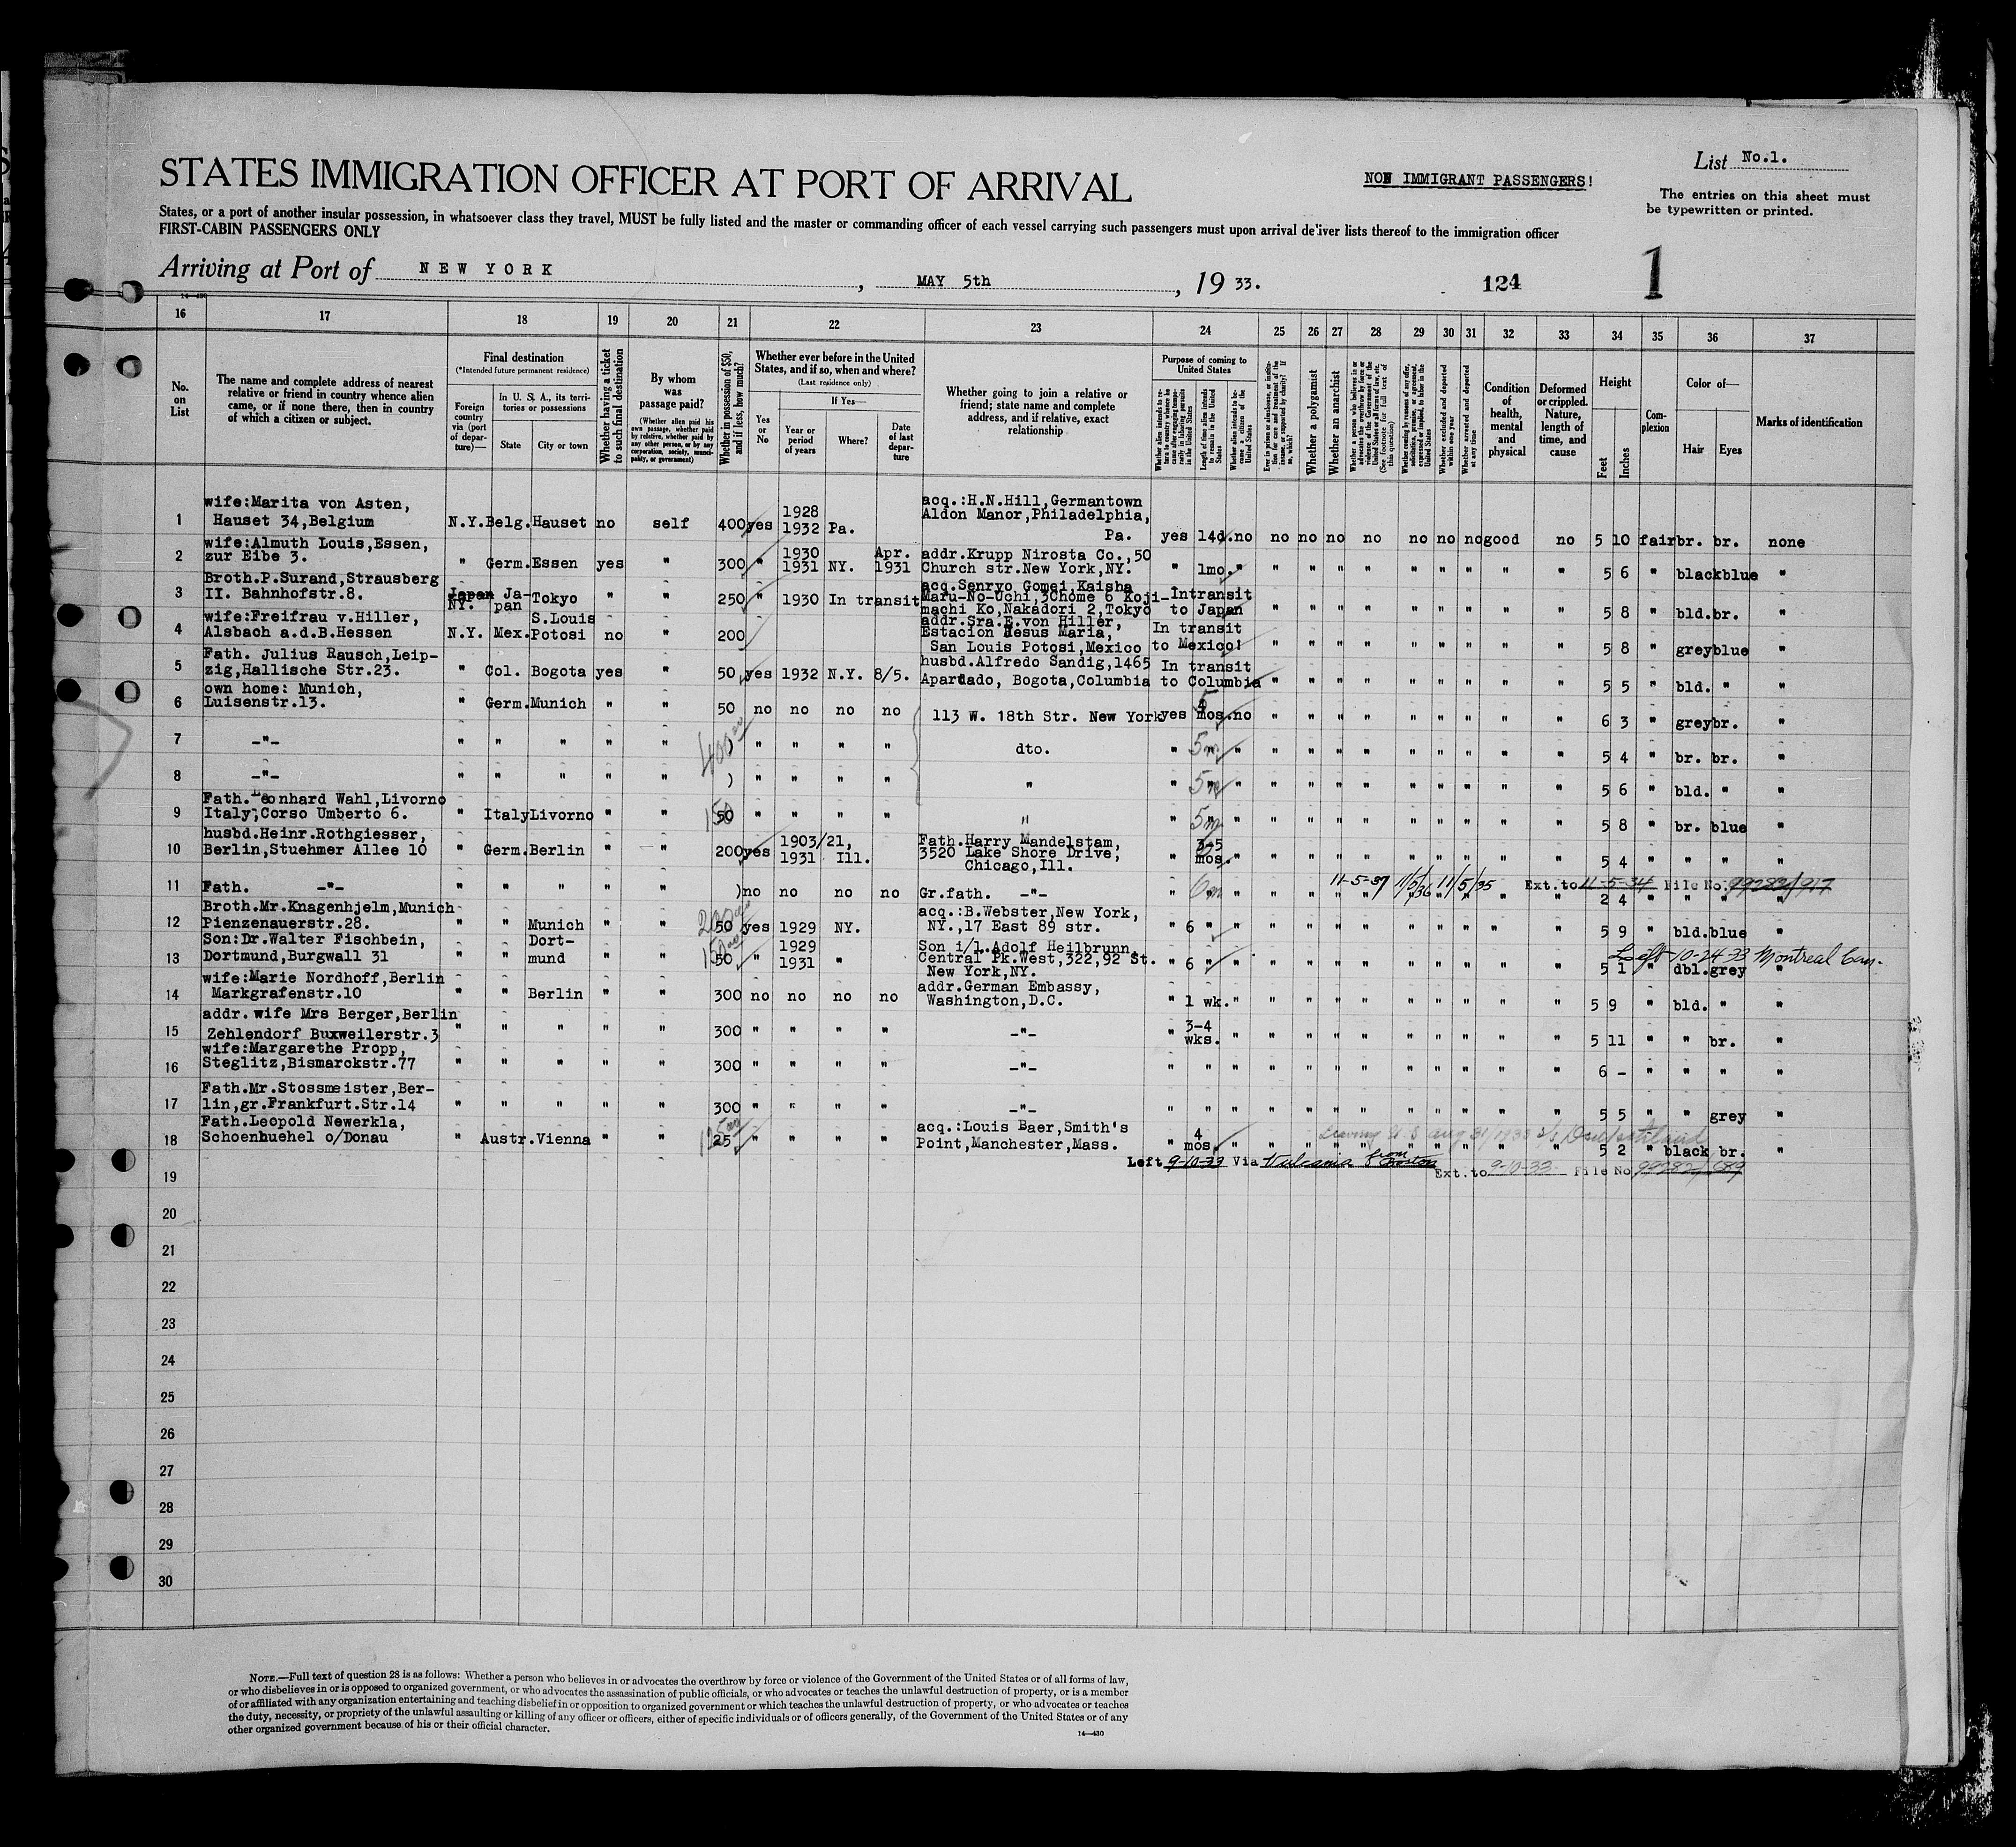 List No.1.
STATES IMMIGRATION OFFICER AT PORT OF ARRIVAL
NON IMMIGRANT PASSENGERS!
The entries on this sheet must
be typewritten or printed.
States, or a port of another insular possession, in whatsoever class they travel, MUST be fully listed and the master or commanding officer of each vessel carrying such passengers must upon arrival deliver lists thereof to the immigration officer
FIRST-CABIN PASSENGERS ONLY
Arriving at Port of NEW YORK, MAY 5th, 19 33.
124
1
16 17 18 19 20 21 22 23 24 25 26 27 28 29 30 31 32 33 34 35 36 37
No. on List
The name and complete address of nearest
relative or friend in country whence alien
came, or if none there, then in country
of which a citizen or subject.
Final destination
(*Intended future permanent residence)
Foreign country via (port of departure)—
In U. S. A., its territories or possessions
State
City or town
Whether having a ticket to such final destination
By whom was passage paid?
(Whether alien paid his own passage, whether paid by relative, whether paid by any other person, or by any corporation, society, municipality, or government)
Whether in possession of $50, and if less, how much?
Whether ever before in the United States, and if so, when and where?
(Last residence only)
Yes or No
If Yes—
Year or period of years
Where?
Date of last departure
Whether going to join a relative or
friend; state name and complete
address, and if relative, exact
relationship
Purpose of coming to United States
Whether alien intends to return to country whence he came after engaging temporarily in laboring pursuits in the United States
Length of time alien intends to remain in the United States
Whether alien intends to become a citizen of the United States
Ever in prison or almshouse, or institution for care and treatment of the insane, or supported by charity? If so, which?
Whether a polygamist
Whether an anarchist
Whether a person who believes in or advocates the overthrow by force or violence of the Government of the United States or all forms of law, etc. (See footnote for full text of this question)
Whether coming by reasons of any offer, solicitation, promise, or agreement, expressed or implied, to labor in the United States
Whether excluded and deported within one year
Whether arrested and deported at any time
Condition of health, mental and physical
Deformed or crippled. Nature, length of time, and cause
Height
Feet
Inches
Complexion
Color of—
Hair
Eyes
Marks of identification
wife:Marita von Asten,
1 Hauset 34,Belgium N.Y. Belg. Hauset no self 400 yes 1928 1932 Pa.
acq.:H.N.Hill,Germantown
Aldon Manor,Philadelphia,
Pa. yes 14d. no no no no no no no no good no 5 10 fair br. br. none
wife:Almuth Louis,Essen,
2 zur Eibe 3. " Germ. Essen yes " 300 " 1930 1931 NY. Apr. 1931
addr.Krupp Nirosta Co.,50
Church str.New York,NY. " 1mo. " " " " " " " " " " 5 6 " black blue "
Broth.P.Surand,Strausberg
3 II. Bahnhofstr.8. Japan NY. Japan Tokyo " " 250 " 1930 In transit
acq.Senryo Gomei Kaisha
Maru-No-Uchi,3Chome 6 Koji-
machi Ko,Nakadori 2,Tokyo Intransit to Japan " " " " " " " " " 5 8 " bld. br. "
wife:Freifrau v.Hiller,
4 Alsbach a.d.B.Hessen N.Y. Mex. S.Louis Potosi no " 200
addr.Sra.E.von Hiller,
Estacion Jesus Maria,
San Louis Potosi,Mexico In transit to Mexico! " " " " " " " " " 5 8 " grey blue "
Fath. Julius Rausch,Leip-
5 zig,Hallische Str.23. " Col. Bogota yes " 50 yes 1932 N.Y. 8/5.
husbd.Alfredo Sandig,1465
Apartado, Bogota,Columbia In transit to Columbia " " " " " " " " " 5 5 " bld. " "
own home: Munich,
6 Luisenstr.13. " Germ. Munich " " 50 no no no no 113 W. 18th Str. New York yes 5 mos. no " " " " " " " " " 6 3 " grey br. "
7 -"- " " " " " ) " " " " dto. " 5m " " " " " " " " " " 5 4 " br. br. "
400 00
8 -"- " " " " " ) " " " " " " 5m " " " " " " " " " " 5 6 " bld. " "
Fath. Leonhard Wahl,Livorno
9 Italy,Corso Umberto 6. " Italy Livorno " " 150 " " " " " " 5m " " " " " " " " " " 5 8 " br. blue "
husbd.Heinr.Rothgiesser,
10 Berlin,Stuehmer Allee 10 " Germ. Berlin " " 200 yes 1903/21, 1931 Ill.
Fath.Harry Mandelstam,
3520 Lake Shore Drive,
Chicago,Ill. " 3-5 mos. " " " " " " " " " " 5 4 " " " "
11-5-37 11/5/36 11/5/35 Ext. to 11-5-34 File No. 99282/917
11 Fath. -"- " " " " " ) no no no no Gr.fath. -"- " 6m " " " " " " " " " " 2 4 " " " "
Broth.Mr.Knagenhjelm,Munich
12 Pienzenauerstr.28. " " Munich " " 50 yes 1929 NY.
acq.:B.Webster,New York,
NY.,17 East 89 str. " 6 " " " " " " " " " " " 5 9 " bld. blue "
Son:Dr.Walter Fischbein,
13 Dortmund,Burgwall 31 " " Dortmund " " 50 " 1929 1931 "
Son i/l.Adolf Heilbrunn,
Central Pk.West,322,92 St.
New York,NY. " 6 " " " " " " " " " " " 5 1 " dbl. grey "
Left 10-24-33 Montreal Can.
wife:Marie Nordhoff,Berlin
14 Markgrafenstr.10 " " Berlin " " 300 no no no no
addr.German Embassy,
Washington,D.C. " 1 wk. " " " " " " " " " " 5 9 " bld. " "
addr. wife Mrs Berger,Berlin
15 Zehlendorf Buxweilerstr.3 " " " " " 300 " " " " -"- " 3-4 wks. " " " " " " " " " 5 11 " " br. "
wife:Margarethe Propp,
16 Steglitz,Bismarckstr.77 " " " " " 300 " " " " -"- " " " " " " " " " " " " 6 - " " " "
Fath.Mr.Stossmeister,Ber-
17 lin,gr.Frankfurt.Str.14 " " " " " 300 " " " " -"- " " " " " " " " " " " " 5 5 " " grey "
Fath.Leopold Newerkla,
18 Schoenbuehel o/Donau " Austr. Vienna " " 25 " " " "
acq.:Louis Baer,Smith's
Point,Manchester,Mass. " 4 mos. " " " " " " " " " " 5 2 " black br. "
Leaving U.S. Aug 31/1933 s/s Deutschland
Left 9-10-33 Via Vulcania from Boston
Ext. to 9-10-33 File No. 99282/689
19
20
21
22
23
24
25
26
27
28
29
30
NOTE.—Full text of question 28 is as follows: Whether a person who believes in or advocates the overthrow by force or violence of the Government of the United States or of all forms of law,
or who disbelieves in or is opposed to organized government, or who advocates the assassination of public officials, or who advocates or teaches the unlawful destruction of property, or is a member
of or affiliated with any organization entertaining and teaching disbelief in or opposition to organized government or which teaches the unlawful destruction of property, or who advocates or teaches
the duty, necessity, or propriety of the unlawful assaulting or killing of any officer or officers, either of specific individuals or of officers generally, of the Government of the United States or of any
other organized government because of his or their official character.
14—430